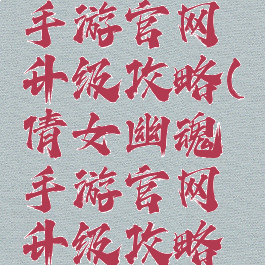 手游官网
升级攻略(
倩女幽魂
手游官网
升级攻略